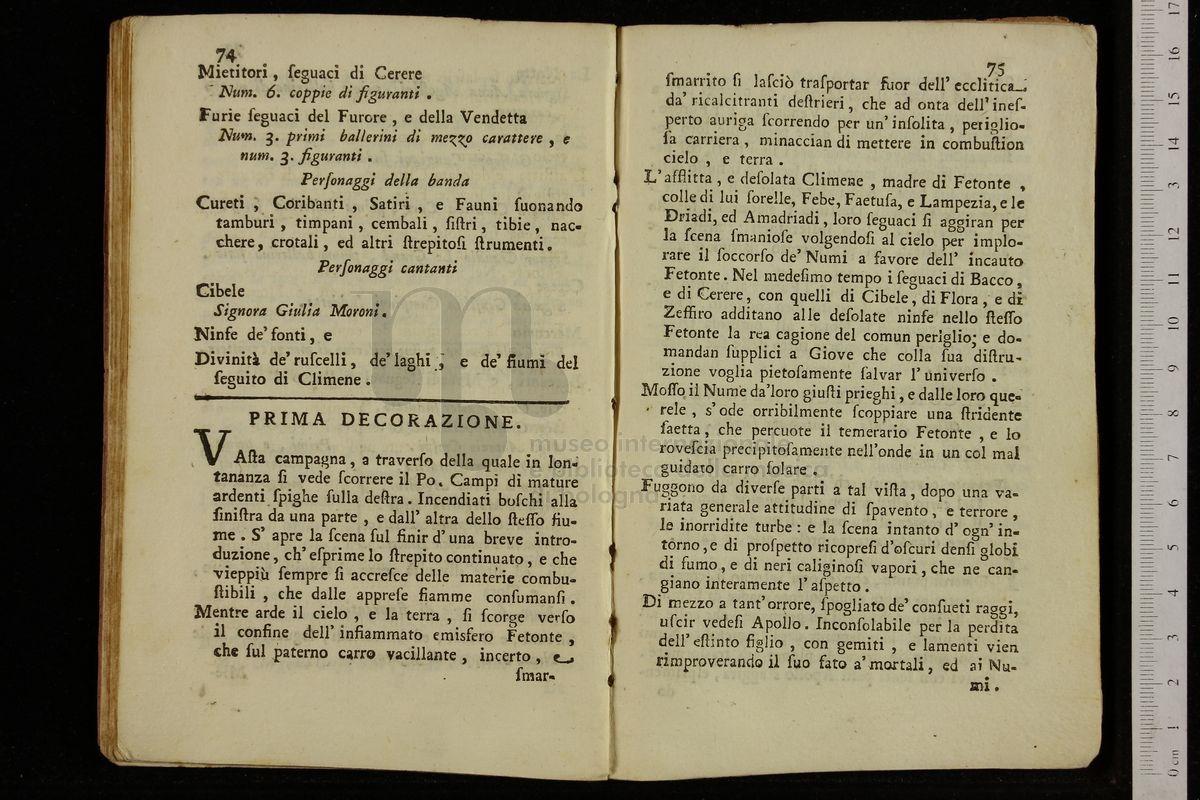 74
Mietitori, ſeguaci di Cerere
Num. 6. coppie di figuranti .
Furie ſeguaci del Furore, e della Vendetta
Num. 3. primi ballerini di mezzo carattere, e
num. 3. figuranti .
Perſonaggi della banda
Cureti, Coribanti, Satiri, e Fauni ſuonando
tamburi, timpani, cembali, ſiſtri, tibie, nac-
chere, crotali, ed altri ſtrepitoſi ſtrumenti.
Perſonaggi cantanti
Cibele
Signora Giulia Moroni.
Ninfe de' fonti, e
Divinità de' ruſcelli, de' laghi, e de' fiumi del
ſeguito di Climene .
PRIMA DECORAZIONE.
VAſta campagna, a traverſo della quale in lon-
tananza ſi vede ſcorrere il Po. Campi di mature
ardenti ſpighe ſulla deſtra. Incendiati boſchi alla
ſiniſtra da una parte, e dall' altra dello ſteſſo fiu-
me . S' apre la ſcena ſul finir d' una breve intro-
duzione, ch' eſprime lo ſtrepito continuato, e che
vieppiù ſempre ſi accreſce delle materie combu-
ſtibili, che dalle appreſe fiamme conſumanſi .
Mentre arde il cielo, e la terra, ſi ſcorge verſo
il confine dell' infiammato emisfero Fetonte,
che ſul paterno carro vacillante, incerto, e
ſmar-
75
ſmarrito ſi laſciò traſportar fuor dell' ecclitica
da' ricalcitranti deſtrieri, che ad onta dell' ineſ-
perto auriga ſcorrendo per un' inſolita, periglio-
ſa carriera, minaccian di mettere in combuſtion
cielo, e terra .
L'afflitta, e deſolata Climene, madre di Fetonte,
colle di lui ſorelle, Febe, Faetuſa, e Lampezia, e le
Driadi, ed Amadriadi, loro ſeguaci ſi aggiran per
la ſcena ſmanioſe volgendoſi al cielo per implo-
rare il ſoccorſo de' Numi a favore dell' incauto
Fetonte. Nel medeſimo tempo i ſeguaci di Bacco,
e di Cerere, con quelli di Cibele, di Flora, e di
Zeffiro additano alle deſolate ninfe nello ſteſſo
Fetonte la rea cagione del comun periglio; e do-
mandan ſupplici a Giove che colla ſua diſtru-
zione voglia pietoſamente ſalvar l' univerſo .
Moſſo il Nume da'loro giuſti prieghi, e dalle loro que-
rele, s' ode orribilmente ſcoppiare una ſtridente
ſaetta, che percuote il temerario Fetonte, e lo
roveſcia precipitoſamente nell'onde in un col mal
guidato carro ſolare .
Fuggono da diverſe parti a tal viſta, dopo una va-
riata generale attitudine di ſpavento, e terrore,
le inorridite turbe: e la ſcena intanto d' ogn' in-
torno, e di proſpetto ricopreſi d'oſcuri denſi globi
di fumo, e di neri caliginoſi vapori, che ne can-
giano interamente l' aſpetto .
Di mezzo a tant' orrore, ſpogliato de' conſueti raggi,
uſcir vedeſi Apollo. Inconſolabile per la perdita
dell' eſtinto figlio, con gemiti, e lamenti vien
rimproverando il ſuo fato a' mortali, ed ai Nu-
mi.